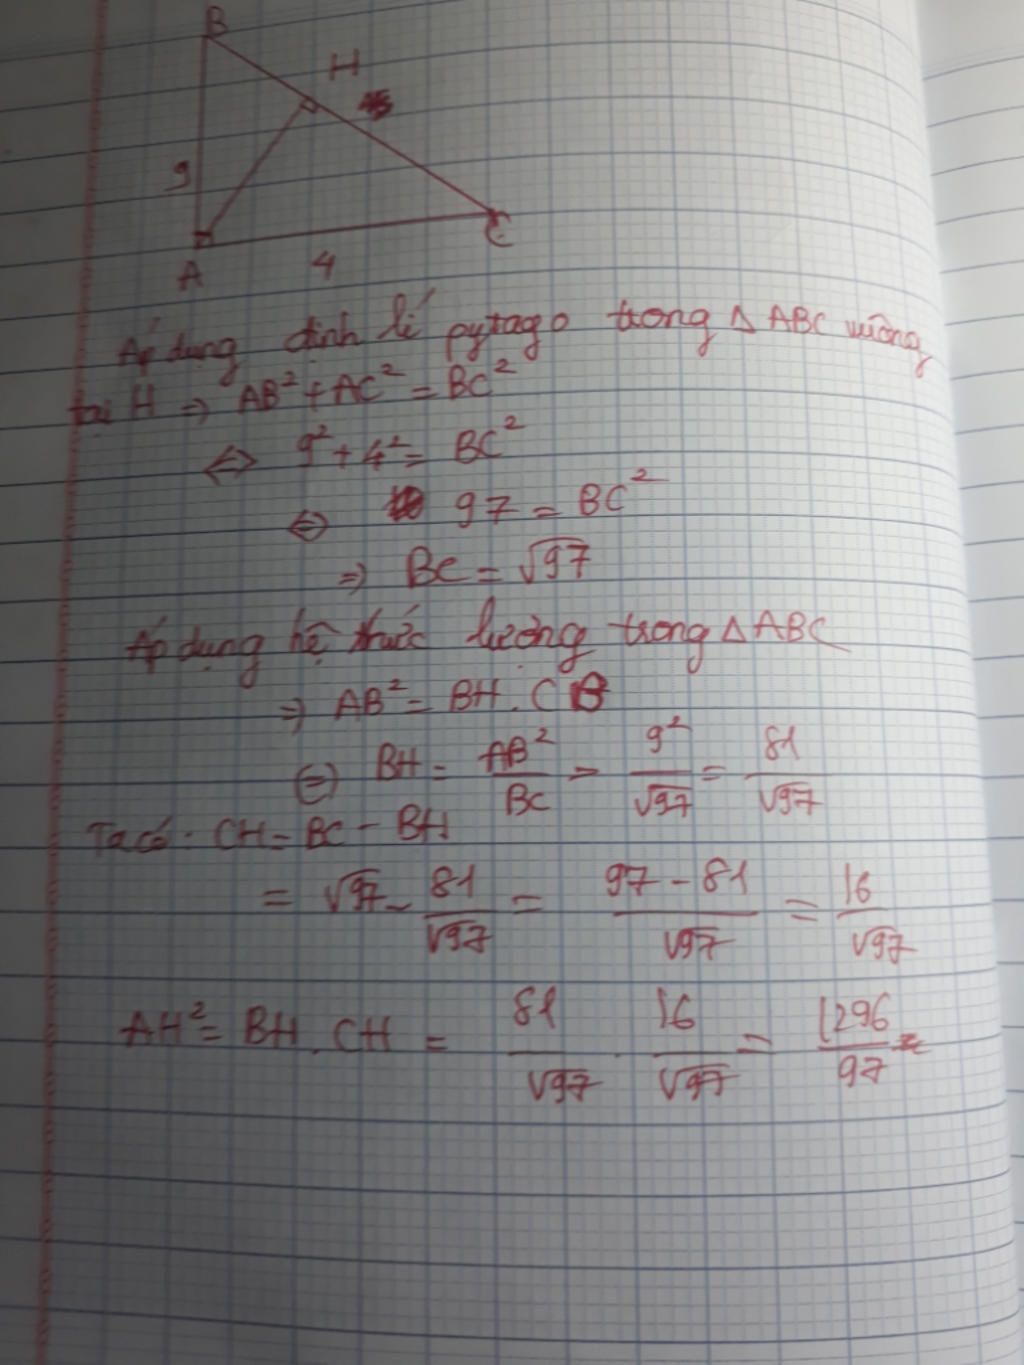 B
H
9
A
4
C
Áp dụng định lí pytago trong Δ ABC vuông
tại H => AB² + AC² = BC²
<=> 9² + 4² = BC²
<=> 97 = BC²
=> BC = √97
Áp dụng hệ thức lượng trong Δ ABC
=> AB² = BH . CB
<=> BH = AB²/BC = 9²/√97 = 81/√97
Ta có : CH = BC - BH
= √97 - 81/√97 = 97 - 81/√97 = 16/√97
AH² = BH . CH = 81/√97 . 16/√97 = 1296/97